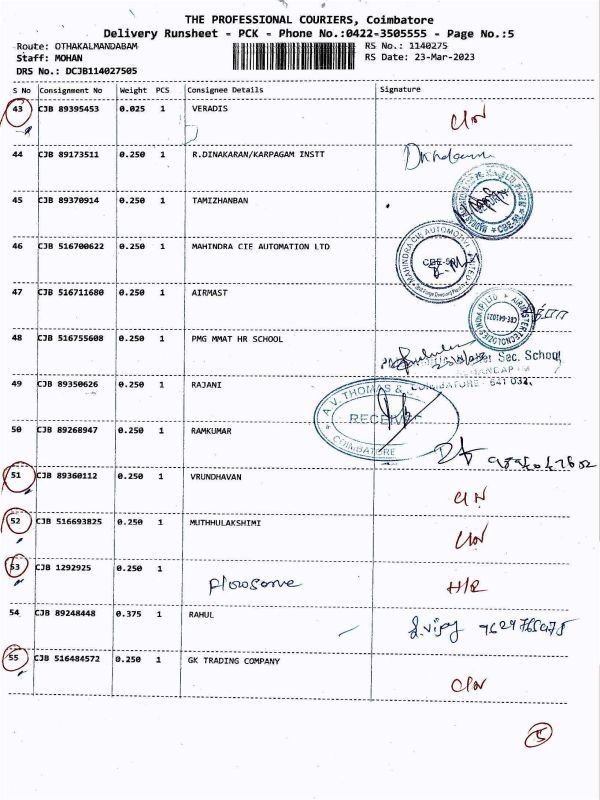 THE PROFESSIONAL COURIERS, Coimbatore
Delivery Runsheet - PCK - Phone No.:0422-3505555 - Page No.:5
Route: OTHAKALMANDABAM RS No.: 1140275
Staff: MOHAN RS Date: 23-Mar-2023
DRS No.: DCJB114027505
S No Consignment No Weight PCS Consignee Details Signature
43 CJB 89395453 0.025 1 VERADIS
44 CJB 89173511 0.250 1 R.DINAKARAN/KARPAGAM INSTT
45 CJB 89370914 0.250 1 TAMIZHANBAN
46 CJB 516700622 0.250 1 MAHINDRA CIE AUTOMATION LTD
47 CJB 516711680 0.250 1 AIRMAST
48 CJB 516755608 0.250 1 PMG MMAT HR SCHOOL
Sec. School
COIMBATORE - 641 032.
49 CJB 89350626 0.250 1 RAJANI
A.V. THOMAS &
COIMBATORE
50 CJB 89268947 0.250 1 RAMKUMAR
51 CJB 89360112 0.250 1 VRUNDHAVAN
52 CJB 516693825 0.250 1 MUTHHULAKSHIMI
53 CJB 1292925 0.250 1 H/R
54 CJB 89248448 0.375 1 RAHUL
55 CJB 516484572 0.250 1 GK TRADING COMPANY
5